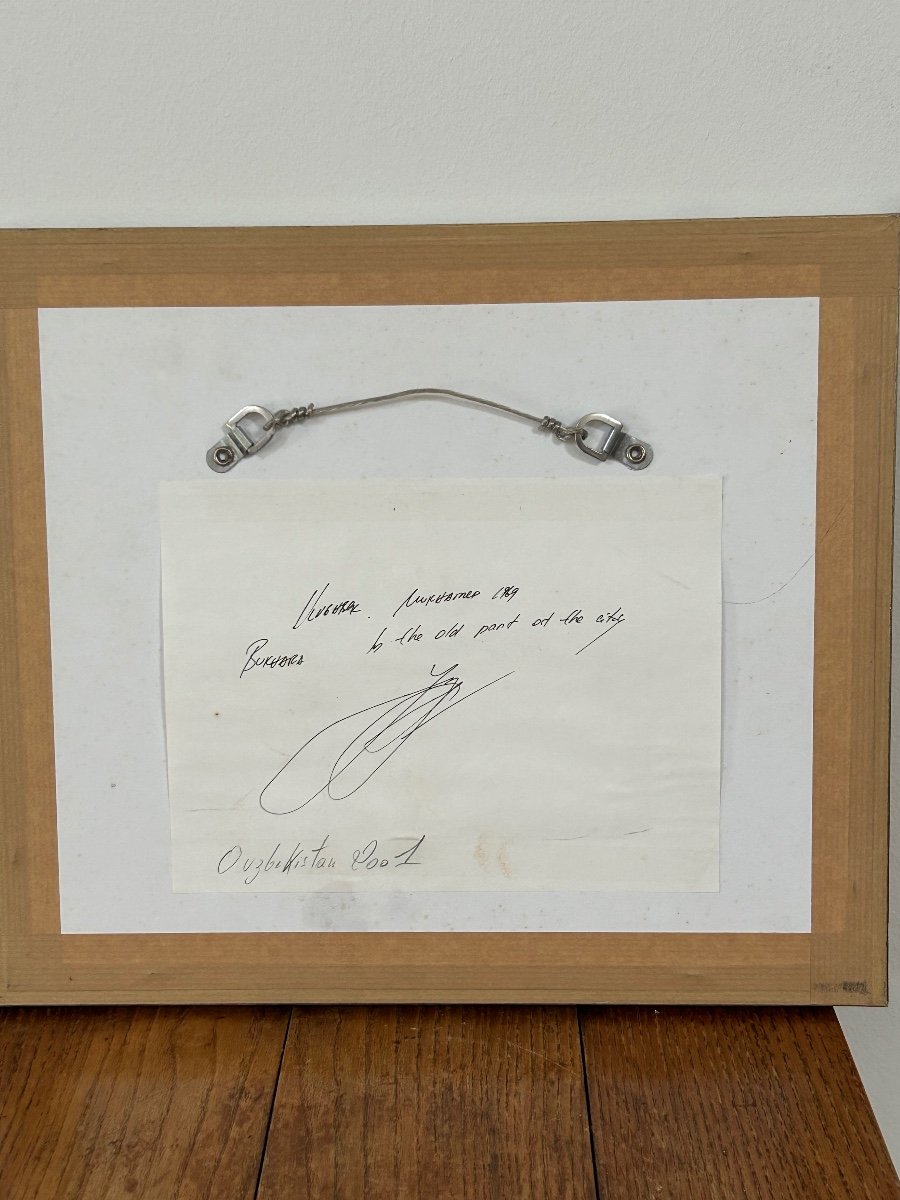 Mukhamed
Bukhara the old part of the city
Ouzbekistan 2001